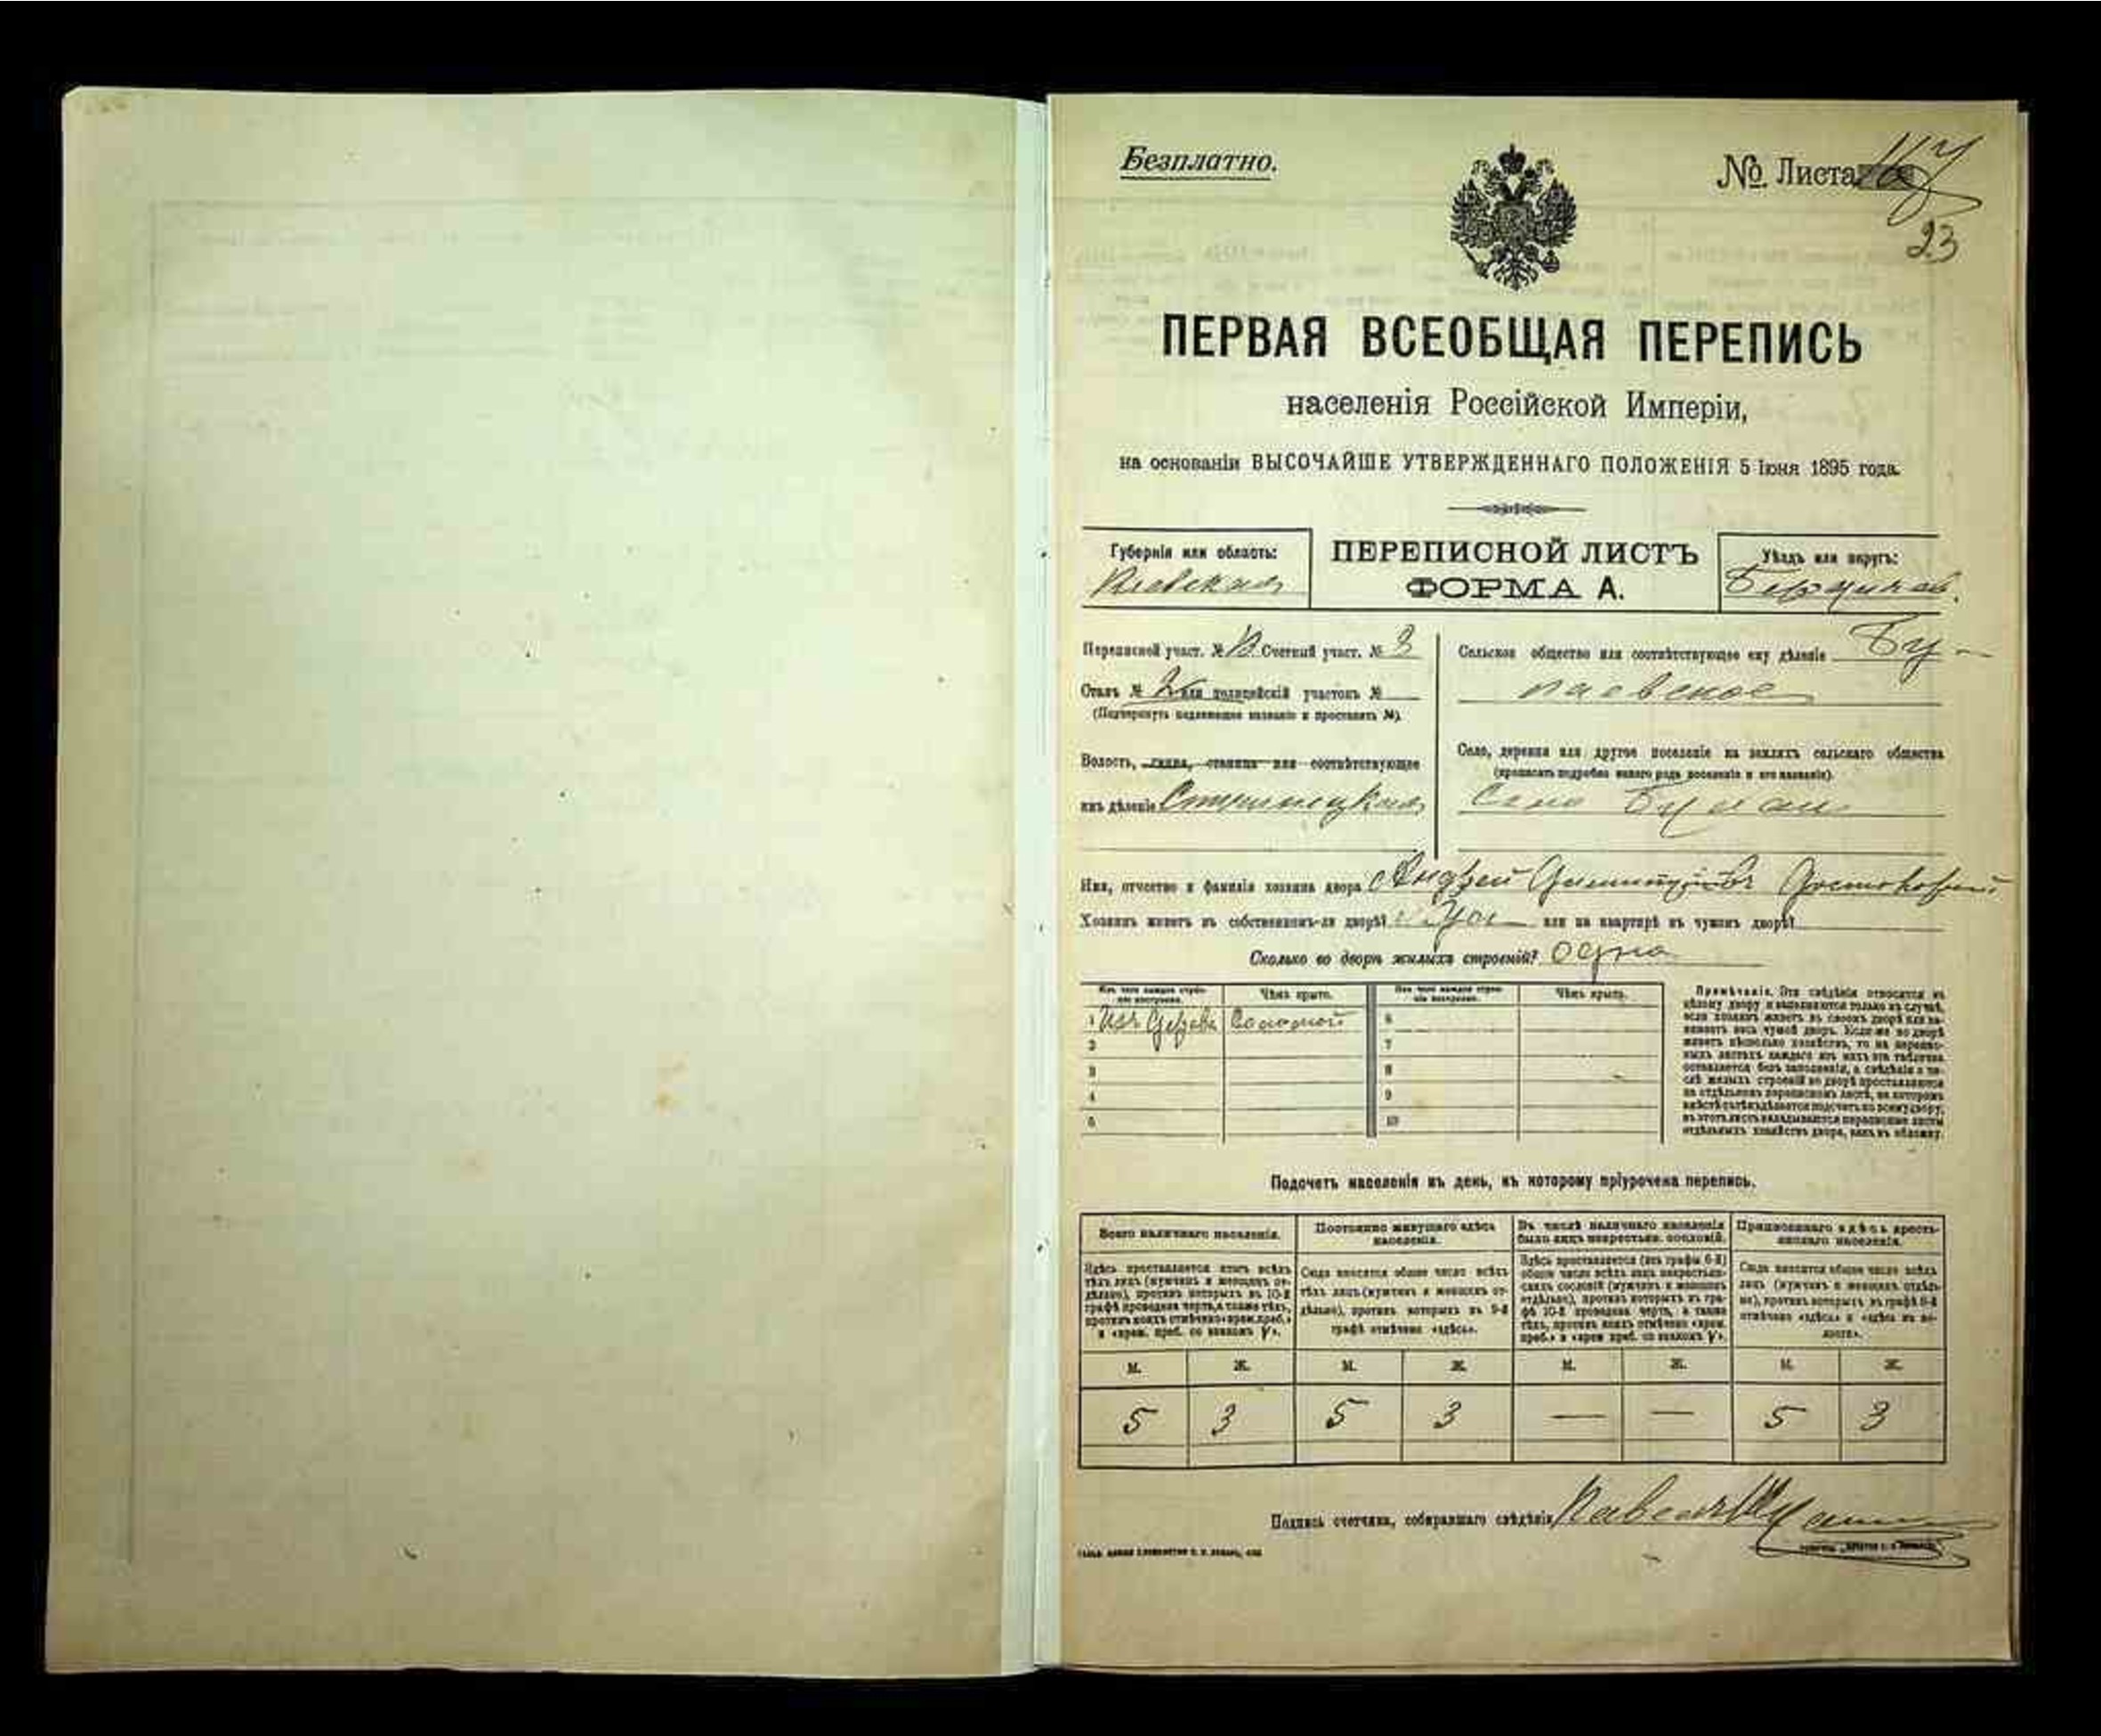 Безплатно.
№ Листа
23
ПЕРВАЯ ВСЕОБЩАЯ ПЕРЕПИСЬ
населенія Россійской Имперіи,
на основаніи ВЫСОЧАЙШЕ УТВЕРЖДЕННАГО ПОЛОЖЕНІЯ 5 Іюня 1895 года.
Губернія или область:
Кіевская
ПЕРЕПИСНОЙ ЛИСТЪ
ФОРМА А.
Уѣздъ или округъ:
Бердичев.
Переписной участ. № Счетный участ. № 3
Станъ № 2 или полицейскій участокъ №
(Подчеркнуть надлежащее названіе и проставить №).
Волость, гмина, станица или соотвѣтствующее
имъ дѣленіе
Сельское общество или соотвѣтствующее ему дѣленіе Бу-
паевское
Село, деревня или другое поселеніе на земляхъ сельскаго общества
(прописать подробно какого рода поселеніе и его названіе).
Село
Имя, отчество и фамилія хозяина двора Андрей
Хозяинъ живетъ въ собственномъ-ли дворѣ? или на квартирѣ въ чужомъ дворѣ?
Сколько во дворѣ жилыхъ строеній? Одна
Изъ чего каждое строеніе построено.
Чѣмъ крыто.
Изъ чего каждое строеніе построено.
Чѣмъ крыто.
1 Изъ дерева Соломой 6
2 7
3 8
4 9
5 10
Примѣчаніе. Эти свѣдѣнія относятся къ
цѣлому двору и заполняются только въ случаѣ,
если хозяинъ живетъ въ своемъ дворѣ или за-
нимаетъ весь чужой дворъ. Если же во дворѣ
живетъ нѣсколько хозяйствъ, то на перепис-
ныхъ листахъ каждаго изъ нихъ эта табличка
оставляется безъ заполненія, а свѣдѣнія о чи-
слѣ жилыхъ строеній во дворѣ проставляются
на отдѣльномъ переписномъ листѣ, на которомъ
вмѣстѣ съ тѣмъ дѣлается подсчетъ по всему двору;
въ этотъ листъ вкладываются переписные листы
отдѣльныхъ хозяйствъ двора, какъ въ обложку.
Подсчетъ населенія въ день, къ которому пріурочена перепись.
Всего наличнаго населенія.
Здѣсь проставляется итогъ всѣхъ
тѣхъ лицъ (мужчинъ и женщинъ от-
дѣльно), противъ которыхъ въ 10-й
графѣ проведена черта, а также тѣхъ,
противъ коихъ отмѣчено «врем. преб.»
и «врем. преб. со знакомъ V».
Постоянно живущаго здѣсь
населенія.
Сюда вносится общее число всѣхъ
тѣхъ лицъ (мужчинъ и женщинъ от-
дѣльно), противъ которыхъ въ 9-й
графѣ отмѣчено «здѣсь».
Въ числѣ наличнаго населенія
было лицъ некрестьян. сословій.
Здѣсь проставляется (изъ графы 6-й)
общее число всѣхъ лицъ некрестьян-
скихъ сословій (мужчинъ и женщинъ
отдѣльно), противъ которыхъ въ гра-
фѣ 10-й проведена черта, а также
тѣхъ, противъ коихъ отмѣчено «врем.
преб.» и «врем. преб. со знакомъ V».
Приписаннаго здѣсь кресть-
янскаго населенія.
Сюда вносится общее число всѣхъ
лицъ (мужчинъ и женщинъ отдѣль-
но), противъ которыхъ въ графѣ 8-й
отмѣчено «здѣсь» и «здѣсь въ во-
лости».
М. Ж. М. Ж. М. Ж. М. Ж.
5 3 5 3 — — 5 3
Подпись счетчика, собиравшаго свѣдѣнія